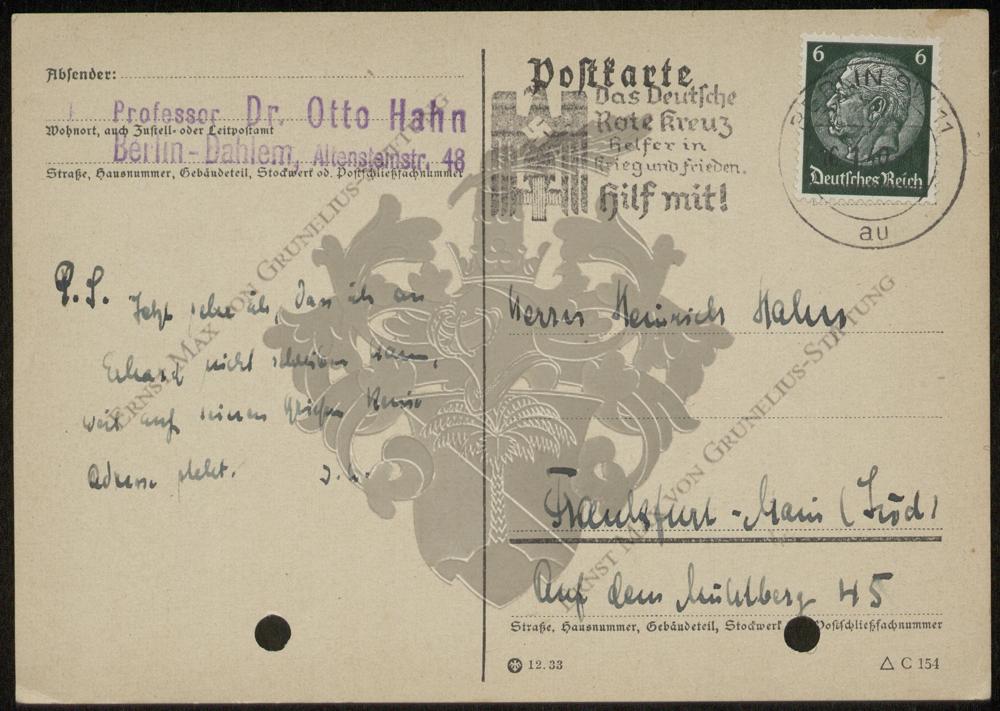 Absender:
Professor Dr. Otto Hahn
Wohnort, auch Zustell- oder Leitpostamt
Berlin-Dahlem, Altensteinstr. 48
Straße, Hausnummer, Gebäudeteil, Stockwerk od. Postschließfachnummer
P.S. Jetzt sehe ich, dass ich an
Erhard nicht schreiben kann,
weil auf seinen Briefen keine
Adresse steht. D. O.
Postkarte
Das Deutsche
Rote Kreuz
Helfer in
Krieg und Frieden.
Hilf mit!
6 6
Deutsches Reich
BERLIN SW 11
au
Herrn Heinrich Hahn
Frankfurt-Main (Süd)
Auf dem Mühlberg 45
Straße, Hausnummer, Gebäudeteil, Stockwerk Postschließfachnummer
12.33
C 154
ERNST MAX VON GRUNELIUS-STIFTUNG
ERNST MAX VON GRUNELIUS-STIFTUNG